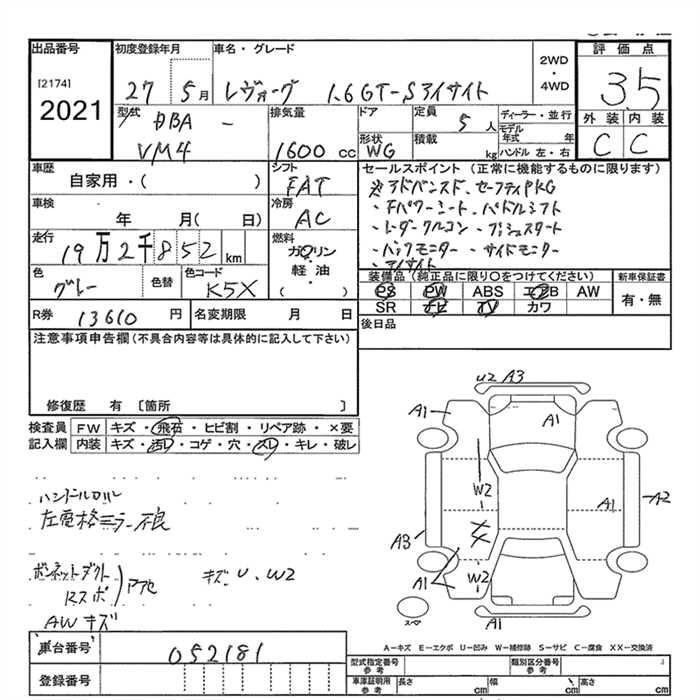 出品番号
[2174]
2021
初度登録年月
27 5月
車名・グレード
レヴォーグ 1.6GT-Sアイサイト
2WD
・
4WD
評価点
3.5
外装 内装
C C
型式
DBA -
VM4
排気量
1600 cc
ドア
形状
WG
定員
5人
積載
kg
ディーラー・並行
モデル年式 年
ハンドル 左・右
車歴
自家用・( )
シフト
FAT
車検
年 月( 日)
冷房
AC
走行
19万2千852 km
燃料
ガソリン
・
軽油
( )
色
グレー
色替
色コード
K5X
R券 13610 円
名変期限 月 日
セールスポイント (正常に機能するものに限ります)
※アドバンスド、セーフティPKG
・Fパワーシート・パドルシフト
・レーダークルコン・プッシュスタート
・バックモニター・サイドモニター
・アイサイト
装備品 (純正品に限り○をつけてください)
PS PW ABS エアB AW
SR ナビ TV カワ
新車保証書
有・無
後日品
注意事項申告欄(不具合内容等は具体的に記入して下さい)
修復歴 有 [箇所 ]
検査員 FW キズ・飛石・ヒビ割・リペア跡・×要
記入欄 内装 キズ・汚レ・コゲ・穴・スレ・キレ・破レ
ハンドルスレ
左電格ミラー不良
ボンネットダクト
Rスポ
アセ
キズ U、W2
AWキズ
U2 A3
A1
A1
W2
A1
A2
A3
XX
A1
W2
A1
スペア
A−キズ E−エクボ U−凹み W−補修跡 S−サビ C−腐食 XX−交換済
車台番号 052181
登録番号
型式指定番号
参考
類別区分番号
参考
車庫証明用
参考
長さ cm 幅 cm 高さ cm